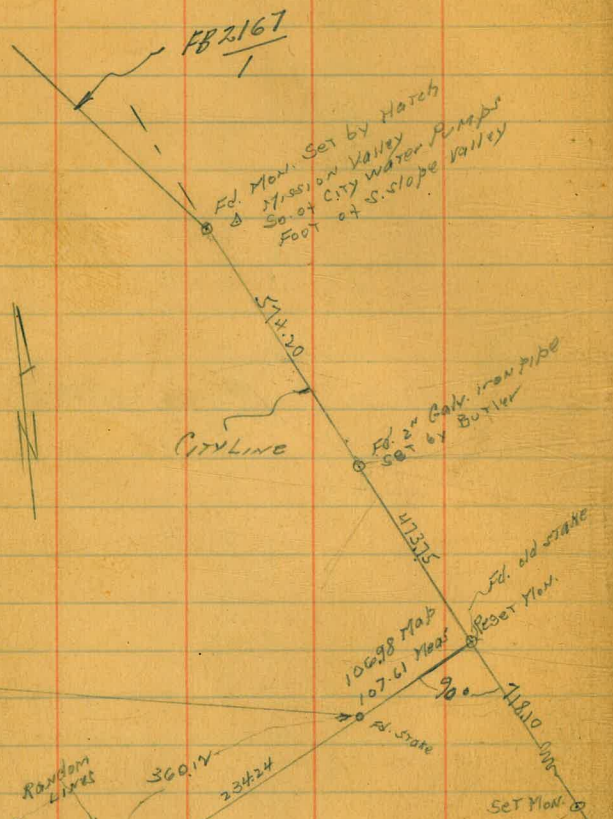 FB 2167
1
Fd. Mon. Set by Hatch
△ Mission Valley
So. of City Water Pumps
Foot of S. Slope Valley
574.20
City Line
Fd. 2" Galv. iron pipe
Set by Butler
N
473.75
Fd. old stake
Reset Mon.
106.98 Map
107.61 Meas
90°
718.10
Fd. stake
360.12
234.24
Random
Lines
Set Mon.